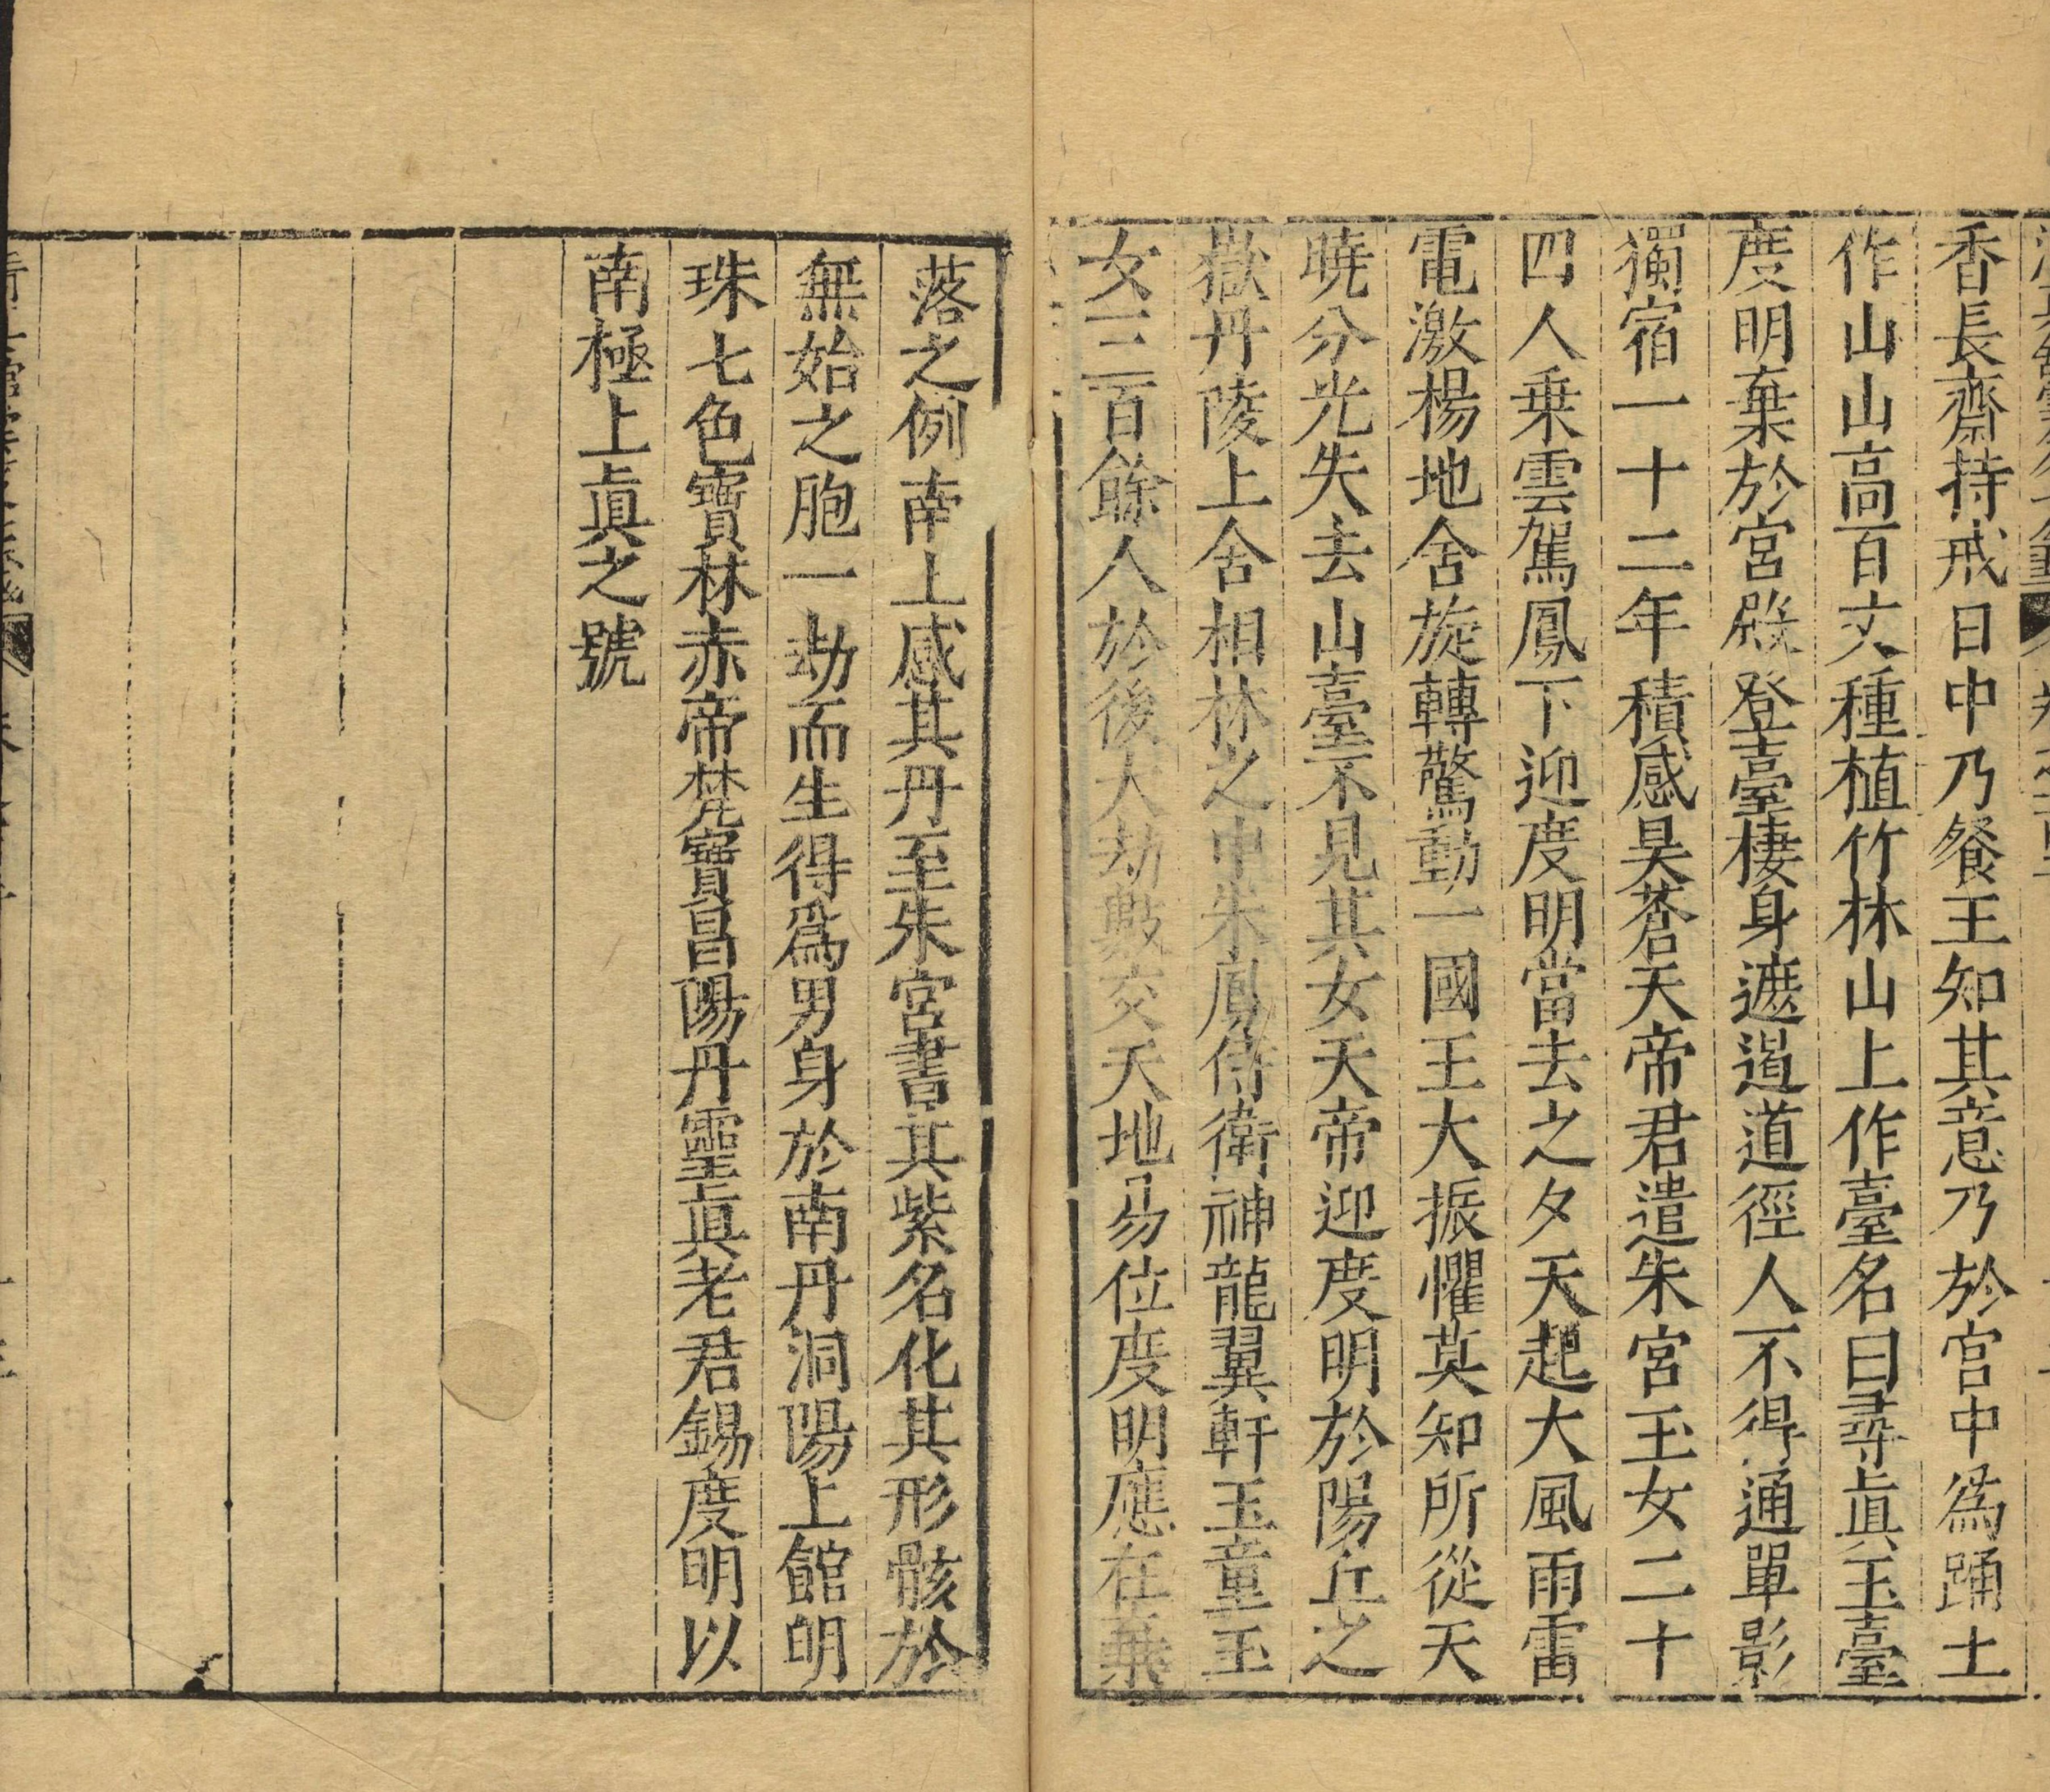 香長齋持戒日中乃餐王知其意乃於宮中爲踊土
作山山高百丈種植竹林山上作臺名曰尋眞玉臺
度明棄於宮殿登臺棲身遮遏道徑人不得通單影
獨宿一十二年積感昊蒼天帝君遣朱宮玉女二十
四人乗雲駕鳳下迎度明當去之夕天起大風雨雷
電激楊地舍旋轉驚動一國王大振懼莫知所從天
曉分光失去山臺不見其女天帝迎度明於陽丘之
嶽丹陵上舍相林之中朱鳳侍衛神龍翼軒玉童玉
女三百餘人於後大劫數交天地易位度明應在棄
落之例南上感其丹至朱宮書其紫名化其形骸於
無始之胞一劫而生得爲男身於南丹洞陽上館明
珠七色寶林赤帝梵寶昌陽丹靈眞老君錫度明以
南極上眞之號